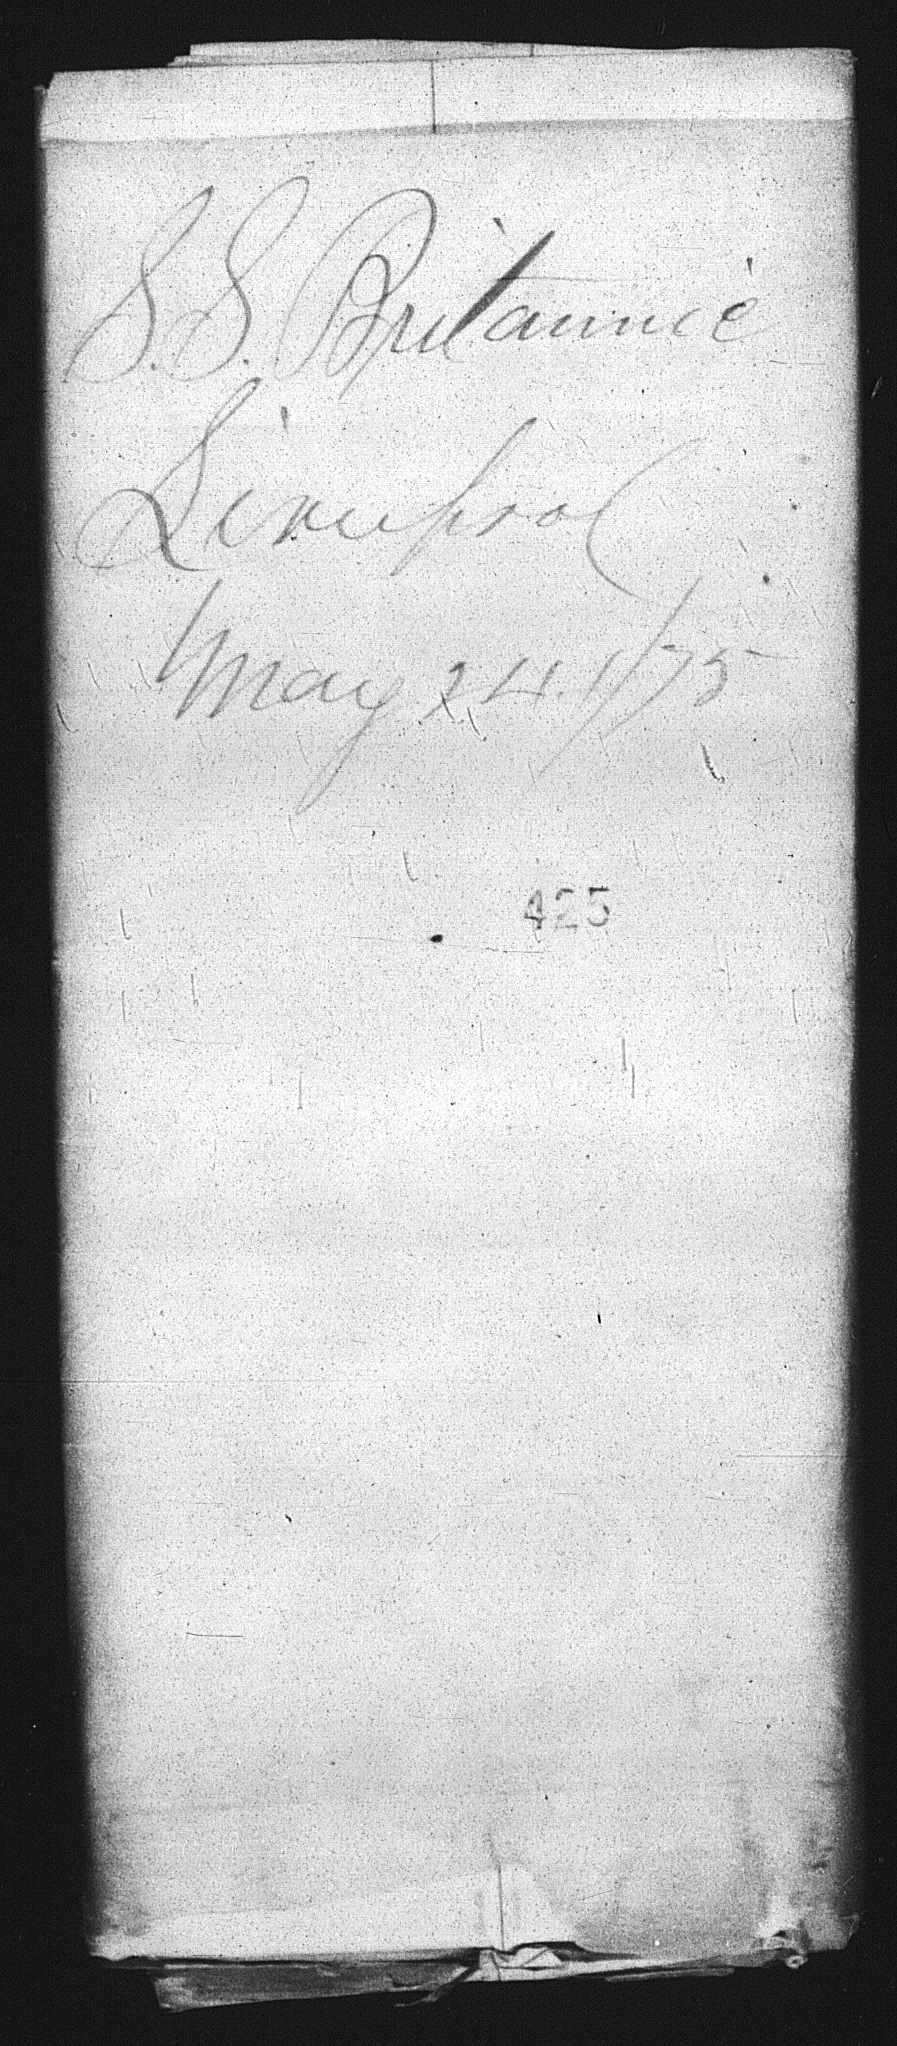 S.S. Britannic
Liverpool
May 24. 1875
425